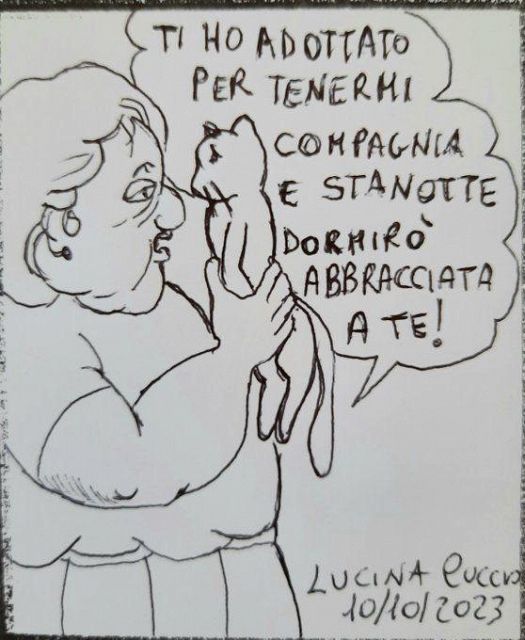 TI HO ADOTTATO
PER TENERMI
COMPAGNIA
E STANOTTE
DORMIRÒ
ABBRACCIATA
A TE!
LUCINA Cuccio
10/10/2023